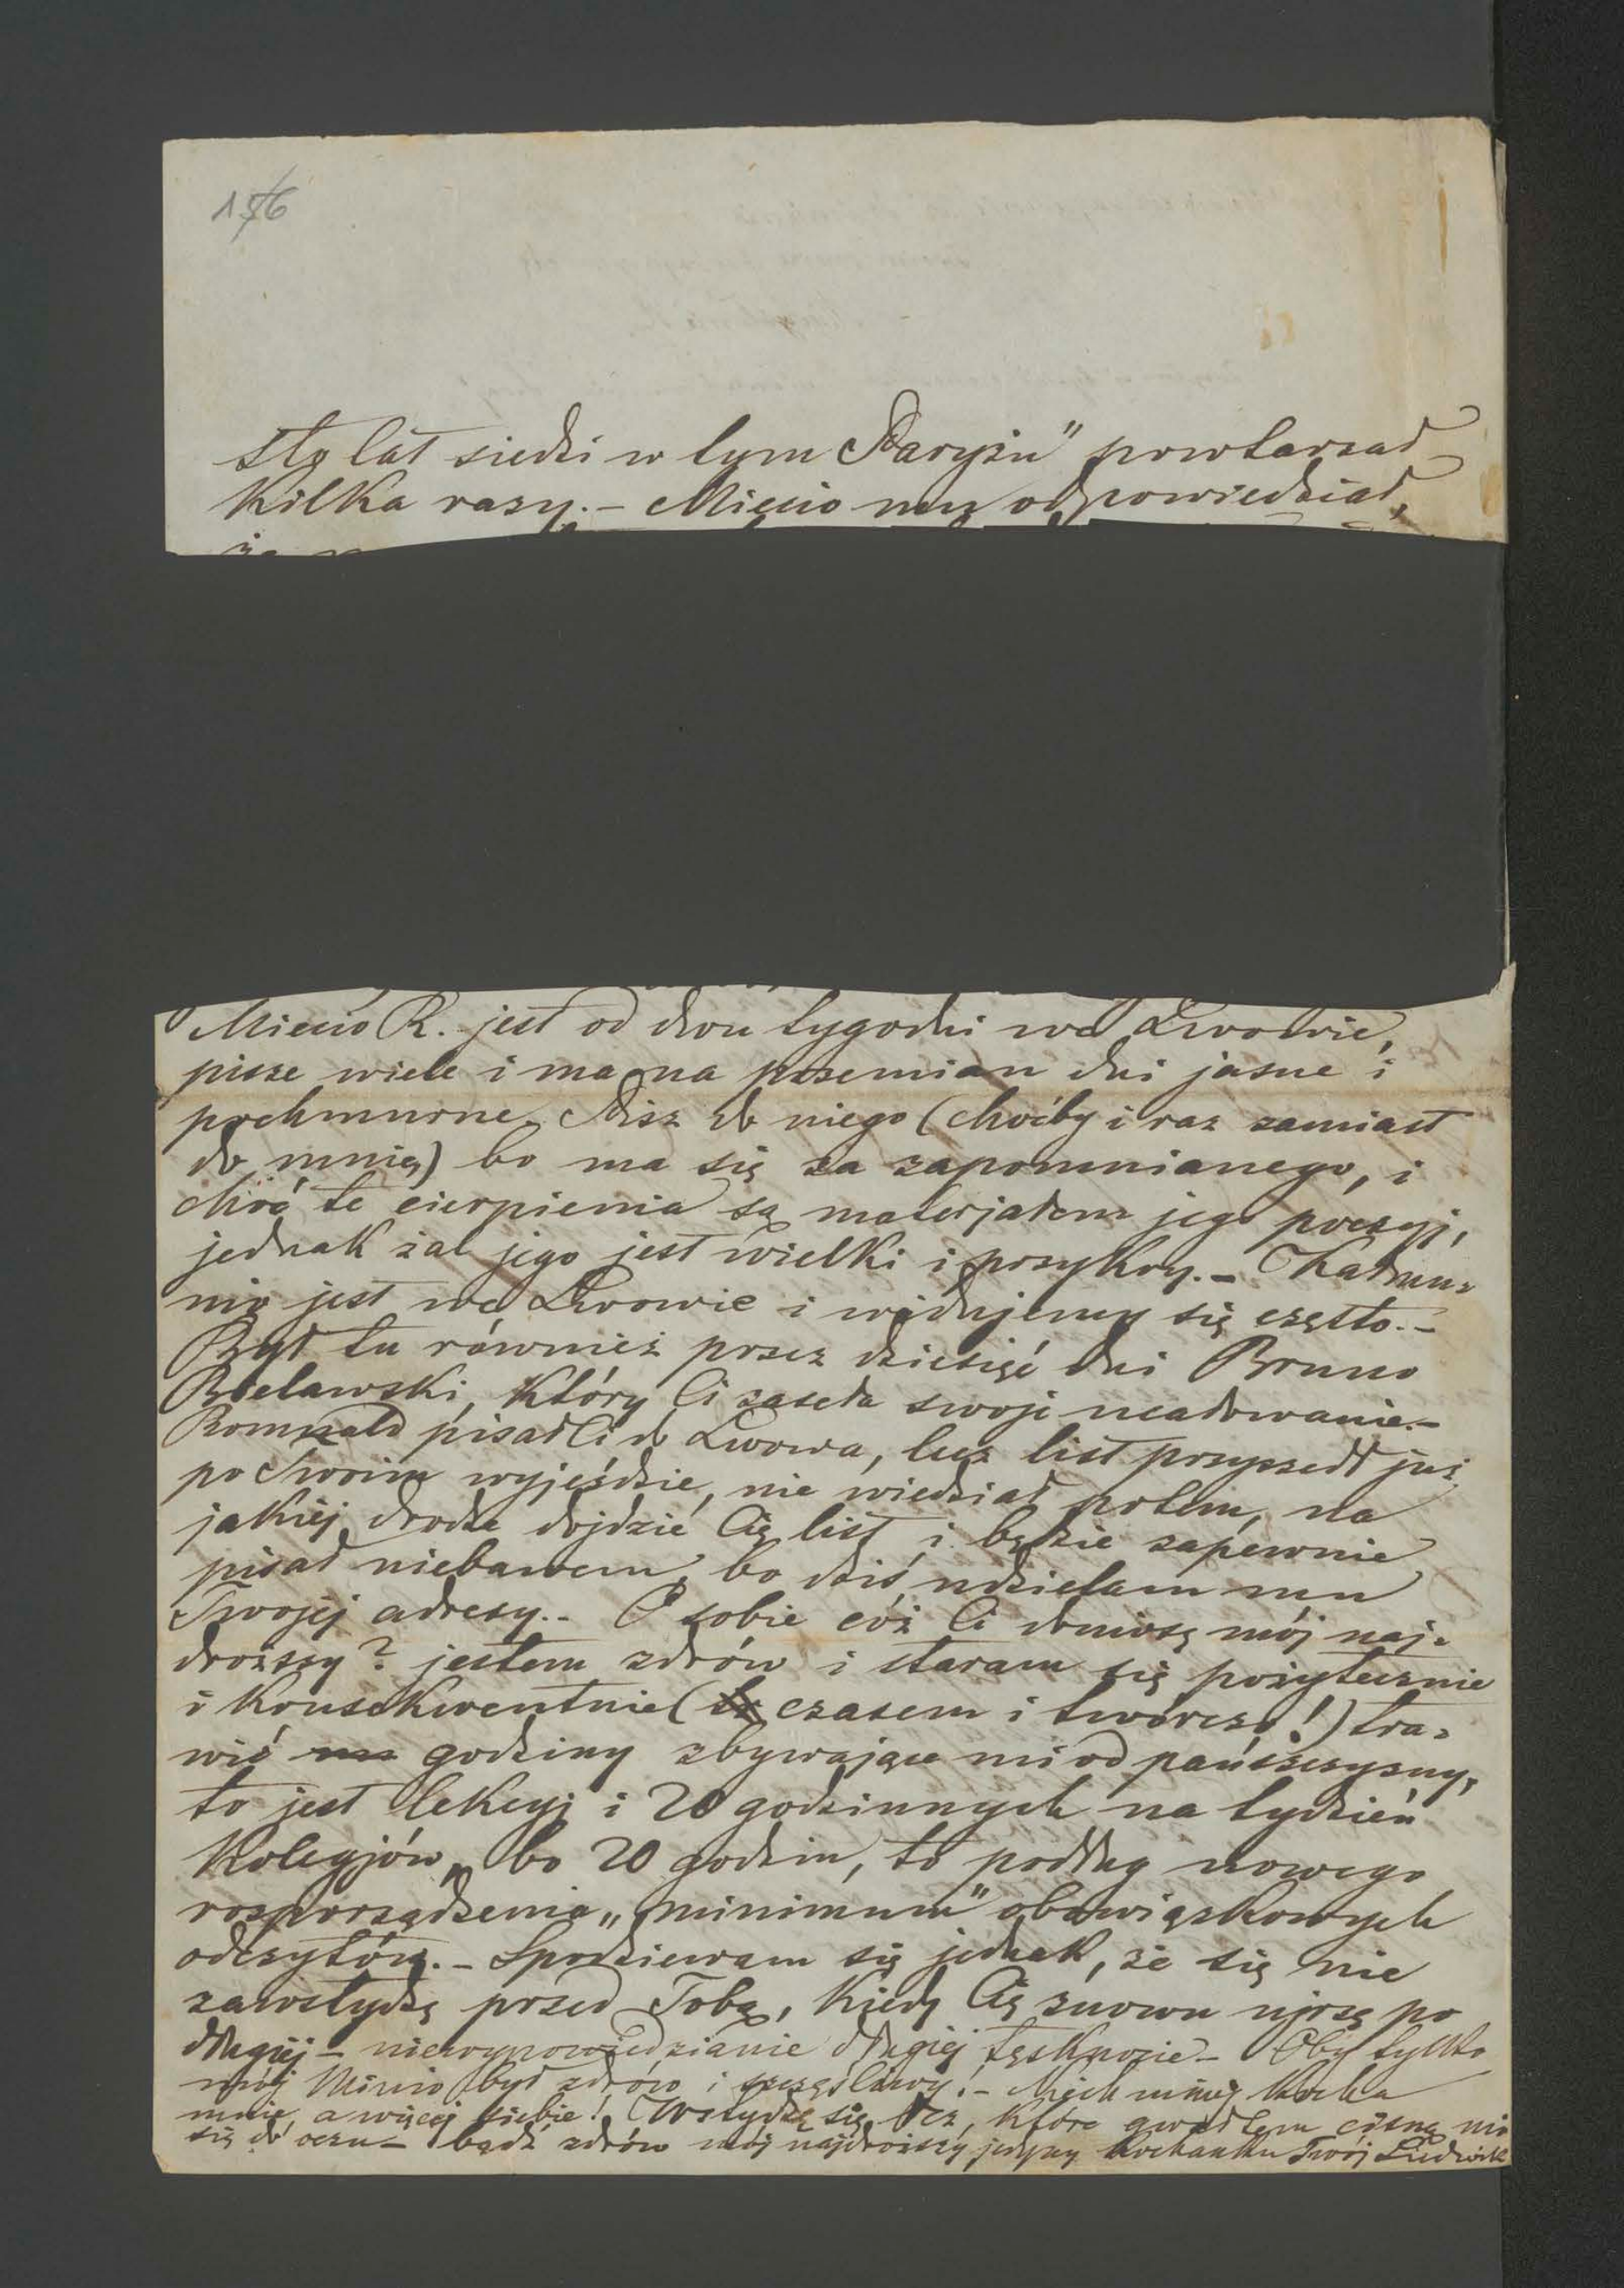 156
sto lat siedzi w tym Paryżu" powtarzał
kilka razy. – Miecio mu odpowiedział,
że
Miecio R. jest od dwu tygodni we Lwowie,
pisze wiele i ma na przemian dni jasne i
pochmurne. Pisz do niego (choćby i raz zamiast
do mnie) bo ma się za zapomnianego, i
choć te cierpienia są materjałem jego poezyj,
jednak żal jego jest wielki i przykry. –
nio jest we Lwowie i widujemy się często. –
Był tu również przez dziesięć dni Bruno
Bielawski, który Ci zaseła swoje ucałowanie. –
Romuald pisał Ci do Lwowa, lecz list przyszedł już
po Twoim wyjeździe, nie wiedział potem, na
jakiej drodze dojdzie Cię list i będzie zapewnie
pisał niebawem, bo dziś udzielam mu
Twojej adresy. – O sobie cóż Ci doniosę mój naj-
droższy? jestem zdrów i staram się pożytecznie
i konsekwentnie (czasem i twórczo!) tra-
wić godziny zbywające mi od pańszczyzny,
to jest lekcyj i 20 godzinnych na tydzień
kolegjów, bo 20 godzin, to podług nowego
rozporządzenia „minimum" obowiązkowych
odczytów. – Spodziewam się jednak, że się nie
zawstydzę przed Tobą, kiedy Cię znowu ujrzę po
długiej – niewypowiedzianie długiej tęsknocie – Oby tylko
mój Miecio był zdrów i szczęśliwy! – Niech mniej kocha
mnie, a więcej siebie! Wstydzę się łez, które gwałtem cisną mi
się do oczu – bądź zdrów mój najdroższy jedyny kochanku Twój Ludwik